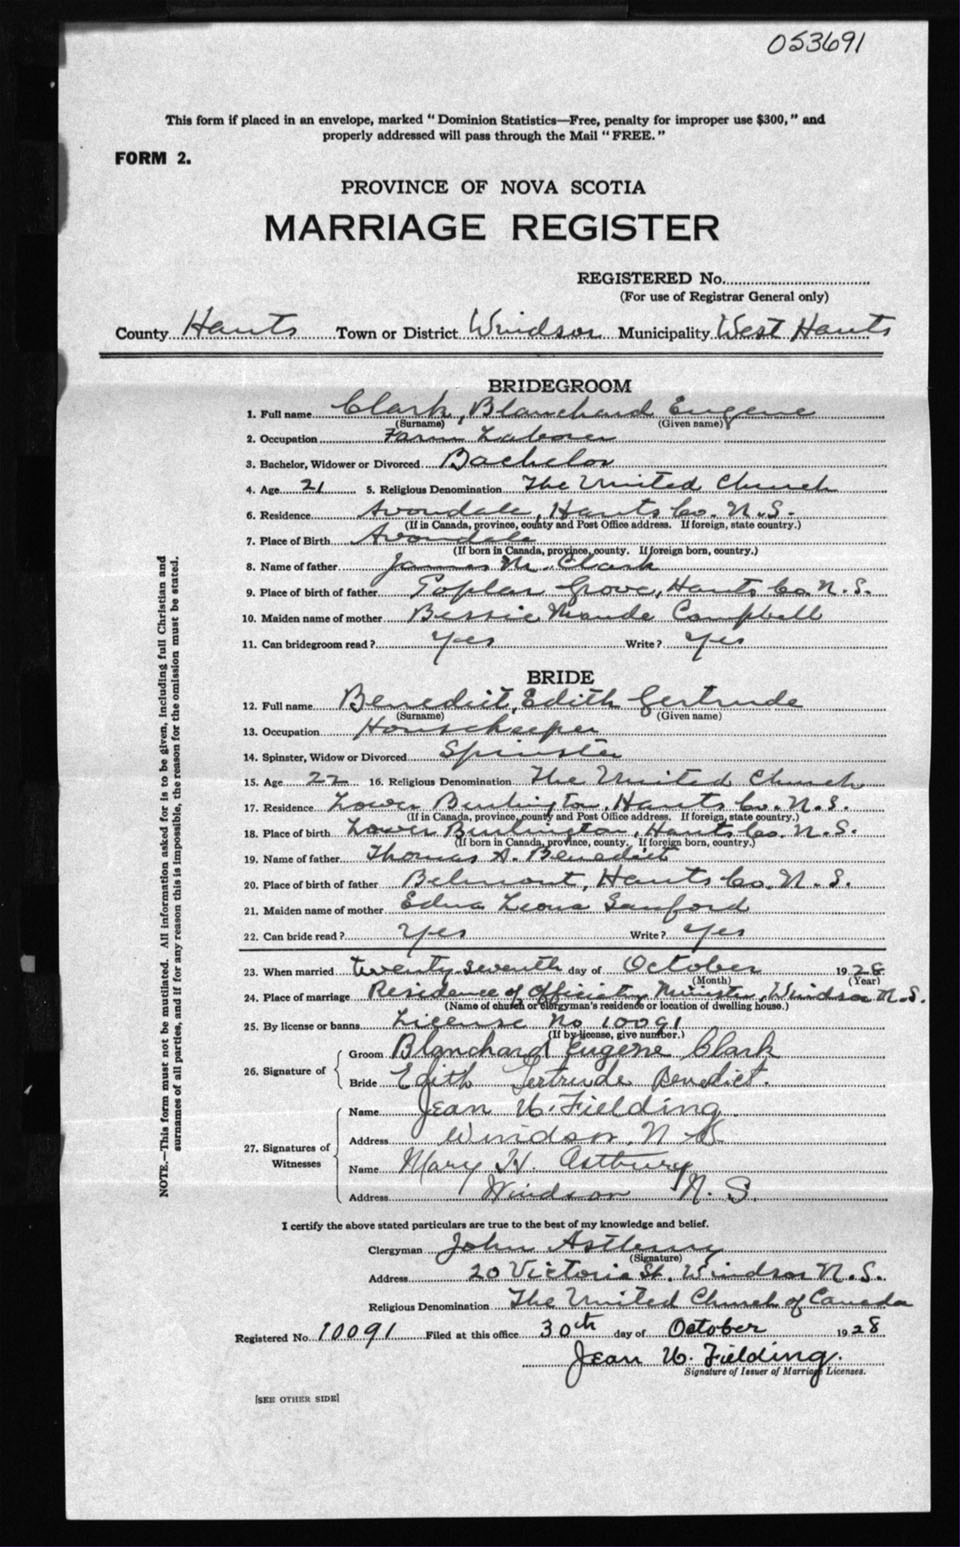 053691
This form if placed in an envelope, marked “Dominion Statistics—Free, penalty for improper use $300,” and
properly addressed will pass through the Mail “FREE.”
FORM 2.
PROVINCE OF NOVA SCOTIA
MARRIAGE REGISTER
REGISTERED No.
(For use of Registrar General only)
County Hants Town or District Windsor Municipality West Hants
BRIDEGROOM
1. Full name Clark, Blanchard Eugene
(Surname) (Given name)
2. Occupation Farm Laborer
3. Bachelor, Widower or Divorced Bachelor
4. Age 21 5. Religious Denomination The United Church
6. Residence Avondale, Hants Co. N.S.
(If in Canada, province, county and Post Office address. If foreign, state country.)
7. Place of Birth Avondale
(If born in Canada, province, county. If foreign born, country.)
8. Name of father James M. Clark
9. Place of birth of father Poplar Grove, Hants Co. N.S.
10. Maiden name of mother Bessie Maude Campbell
11. Can bridegroom read? Yes Write? Yes
BRIDE
12. Full name Benedict, Edith Gertrude
(Surname) (Given name)
13. Occupation Housekeeper
14. Spinster, Widow or Divorced Spinster
15. Age 22 16. Religious Denomination The United Church
17. Residence Lower Burlington, Hants Co. N.S.
(If in Canada, province, county and Post Office address. If foreign, state country.)
18. Place of birth Lower Burlington, Hants Co. N.S.
(If born in Canada, province, county. If foreign born, country.)
19. Name of father Thomas A. Benedict
20. Place of birth of father Belmont, Hants Co. N.S.
21. Maiden name of mother Edna Leona Sanford
22. Can bride read? Yes Write? Yes
23. When married twenty-seventh day of October 1928
(Month) (Year)
24. Place of marriage Residence of Officiating Minister, Windsor N.S.
(Name of church or clergyman's residence or location of dwelling house.)
25. By license or banns License No 10091
(If by license, give number.)
26. Signature of Groom Blanchard Eugene Clark
Bride Edith Gertrude Benedict.
27. Signatures of Witnesses Name Jean U. Fielding
Address Windsor, N S
Name Mary H. Astbury
Address Windsor N. S.
I certify the above stated particulars are true to the best of my knowledge and belief.
Clergyman John Astbury
(Signature)
Address 20 Victoria St. Windsor N.S.
Religious Denomination The United Church of Canada
Registered No. 10091 Filed at this office 30th day of October 1928
Jean U. Fielding.
Signature of Issuer of Marriage Licenses.
[SEE OTHER SIDE]
NOTE.—This form must not be mutilated. All information asked for is to be given, including full Christian and
surnames of all parties, and if for any reason this is impossible, the reason for the omission must be stated.